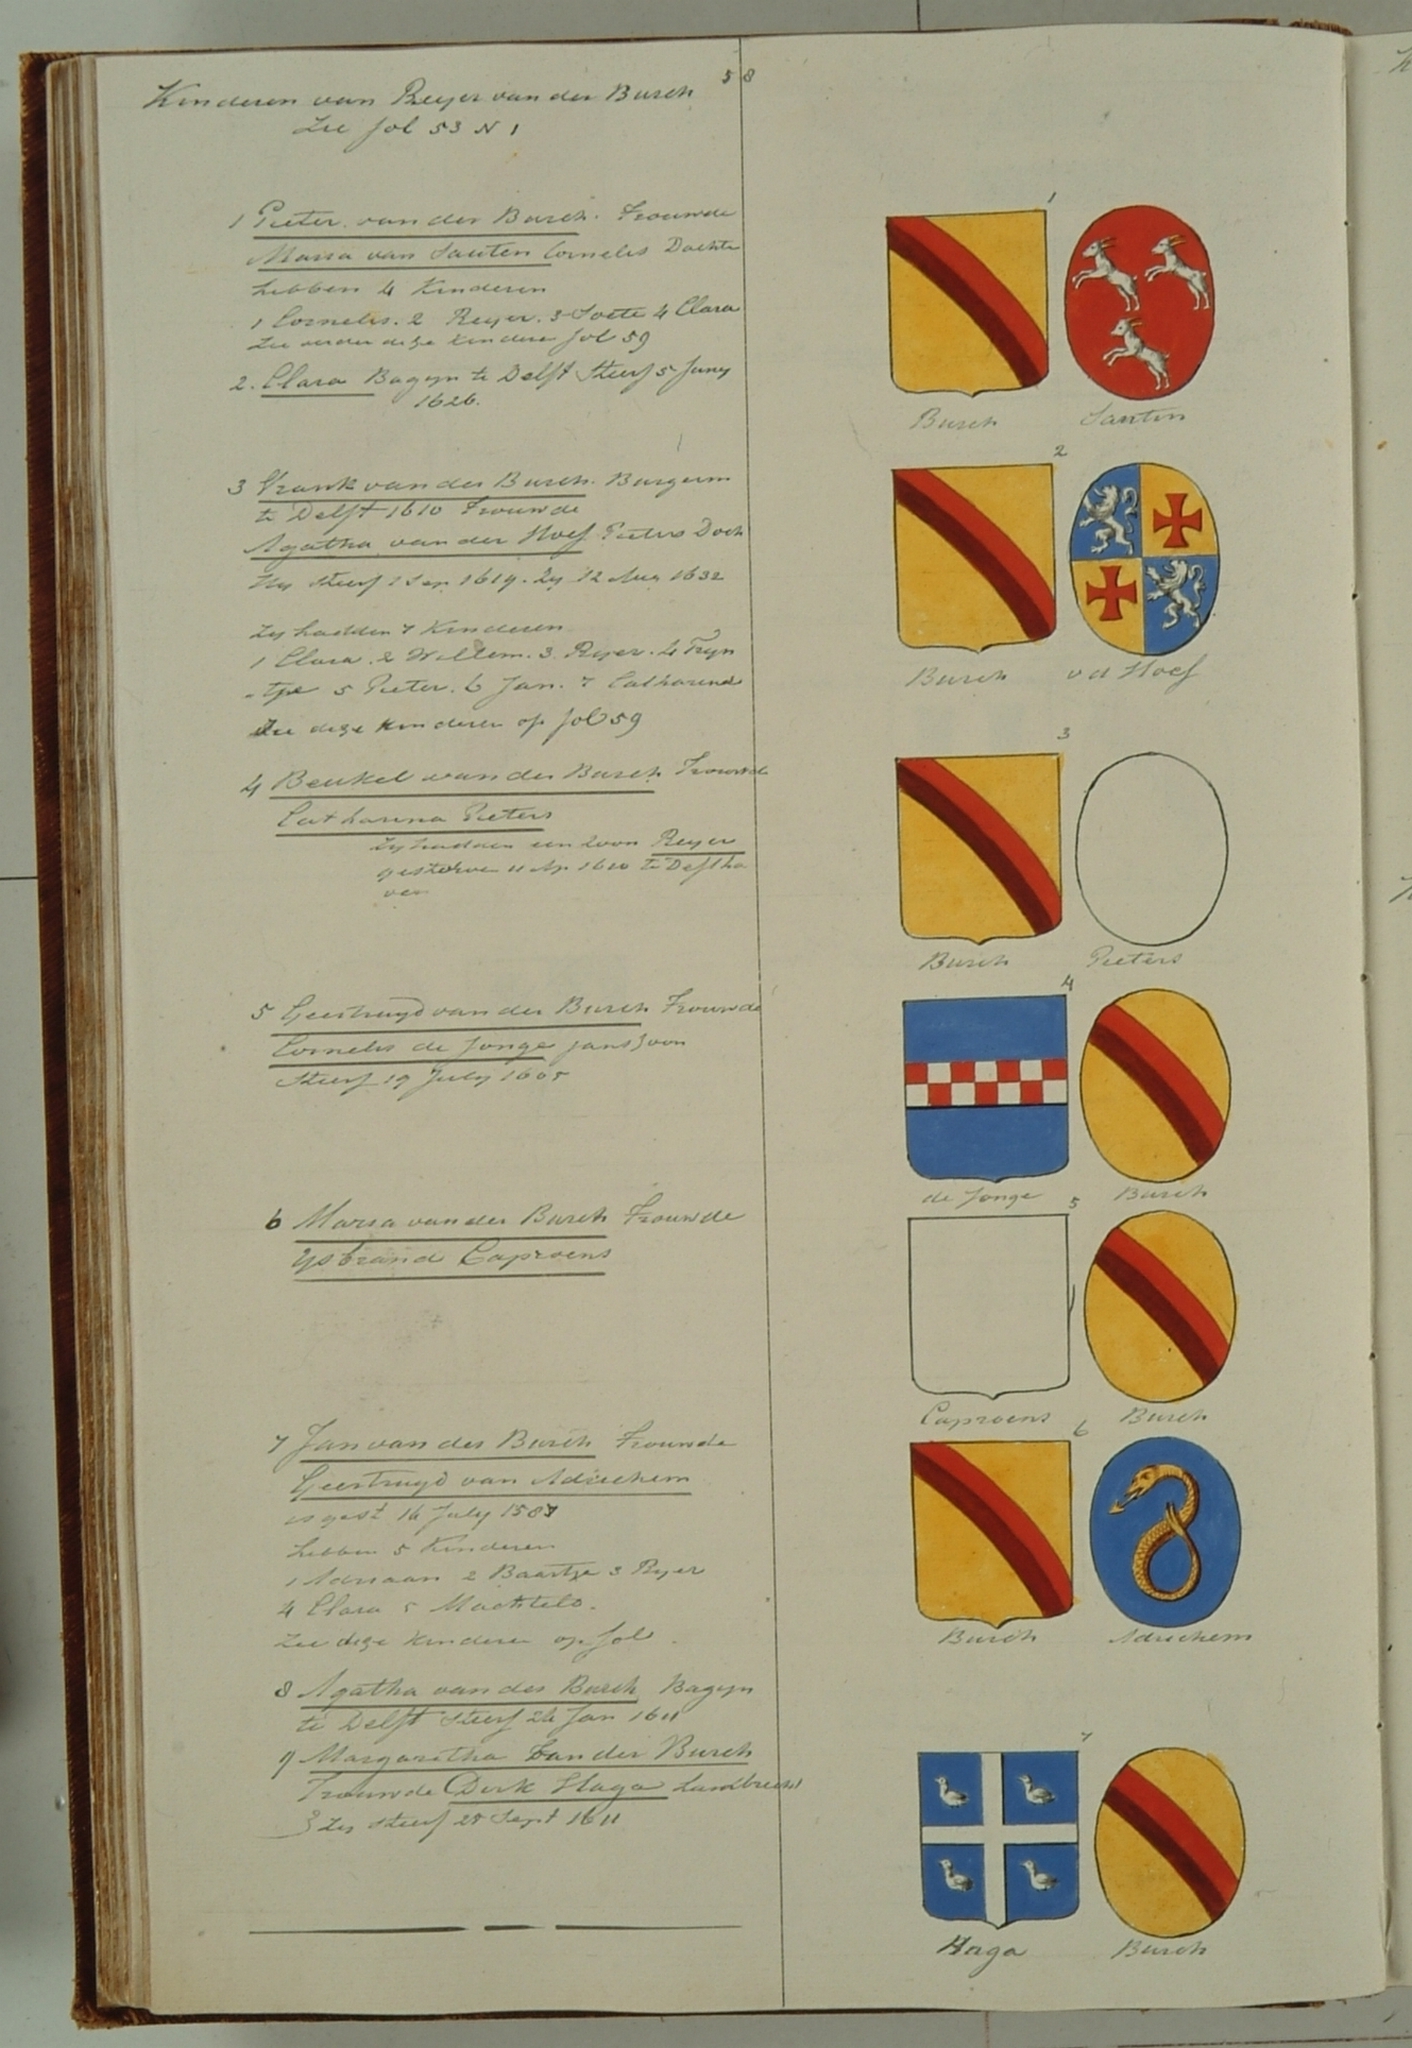 58
Kinderen van Reyer van der Burch
Zie fol 53 N 1
1 Pieter van der Burch. Trouwde
Maria van Santen Cornelis Dochte
hebben 4 Kinderen
1 Cornelis. 2 Reyer. 3 Soete 4 Clara
Zie verder deze kinderen fol 59
2. Clara Bagyn te Delft Sterf 5 Juny
1626.
3 Frank van der Burch. Burgerm
te Delft 1610 Trouwde
Agatha van der Hoef Pieters Doch
Hy sterf 1 Sep 1619. Zy 12 Aug 1632
Zy hadden 7 Kinderen
1 Clara. 2 Willem. 3. Reyer. 4 Tryn
-tje 5 Pieter. 6 Jan. 7 Catharina
Zie deze kinderen op fol 59
4 Beukel van der Burch Trouwde
Catharina Pieters
Zy hadden een zoon Reyer
gestorven 11 Ap 1610 te Delfha
ven
5 Geertruyd van der Burch Trouwde
Cornelis de Jonge Jans Zoon
Sterf 19 July 1605
6 Maria van der Burch Trouwde
Ysbrand Caproens
7 Jan van der Burch Trouwde
Geertruyd van Adrichem
is gest 16 July 1583
hebben 5 Kinderen
1 Adriaan 2 Baartje 3 Reyer
4 Clara 5 Machteld.
Zie deze kinderen op fol .
8 Agatha van der Burch Bagyn
te Delft Sterf 26 Jan 1611
9 Margaretha van der Burch
Trouwde Dirk Haga
Zy sterf 28 Sept 1611
1
Burch Santen
2
Burch vd Hoef
3
Burch Pieters
4
de Jonge Burch
5
Caproens Burch
6
Burch Adrichem
7
Haga Burch